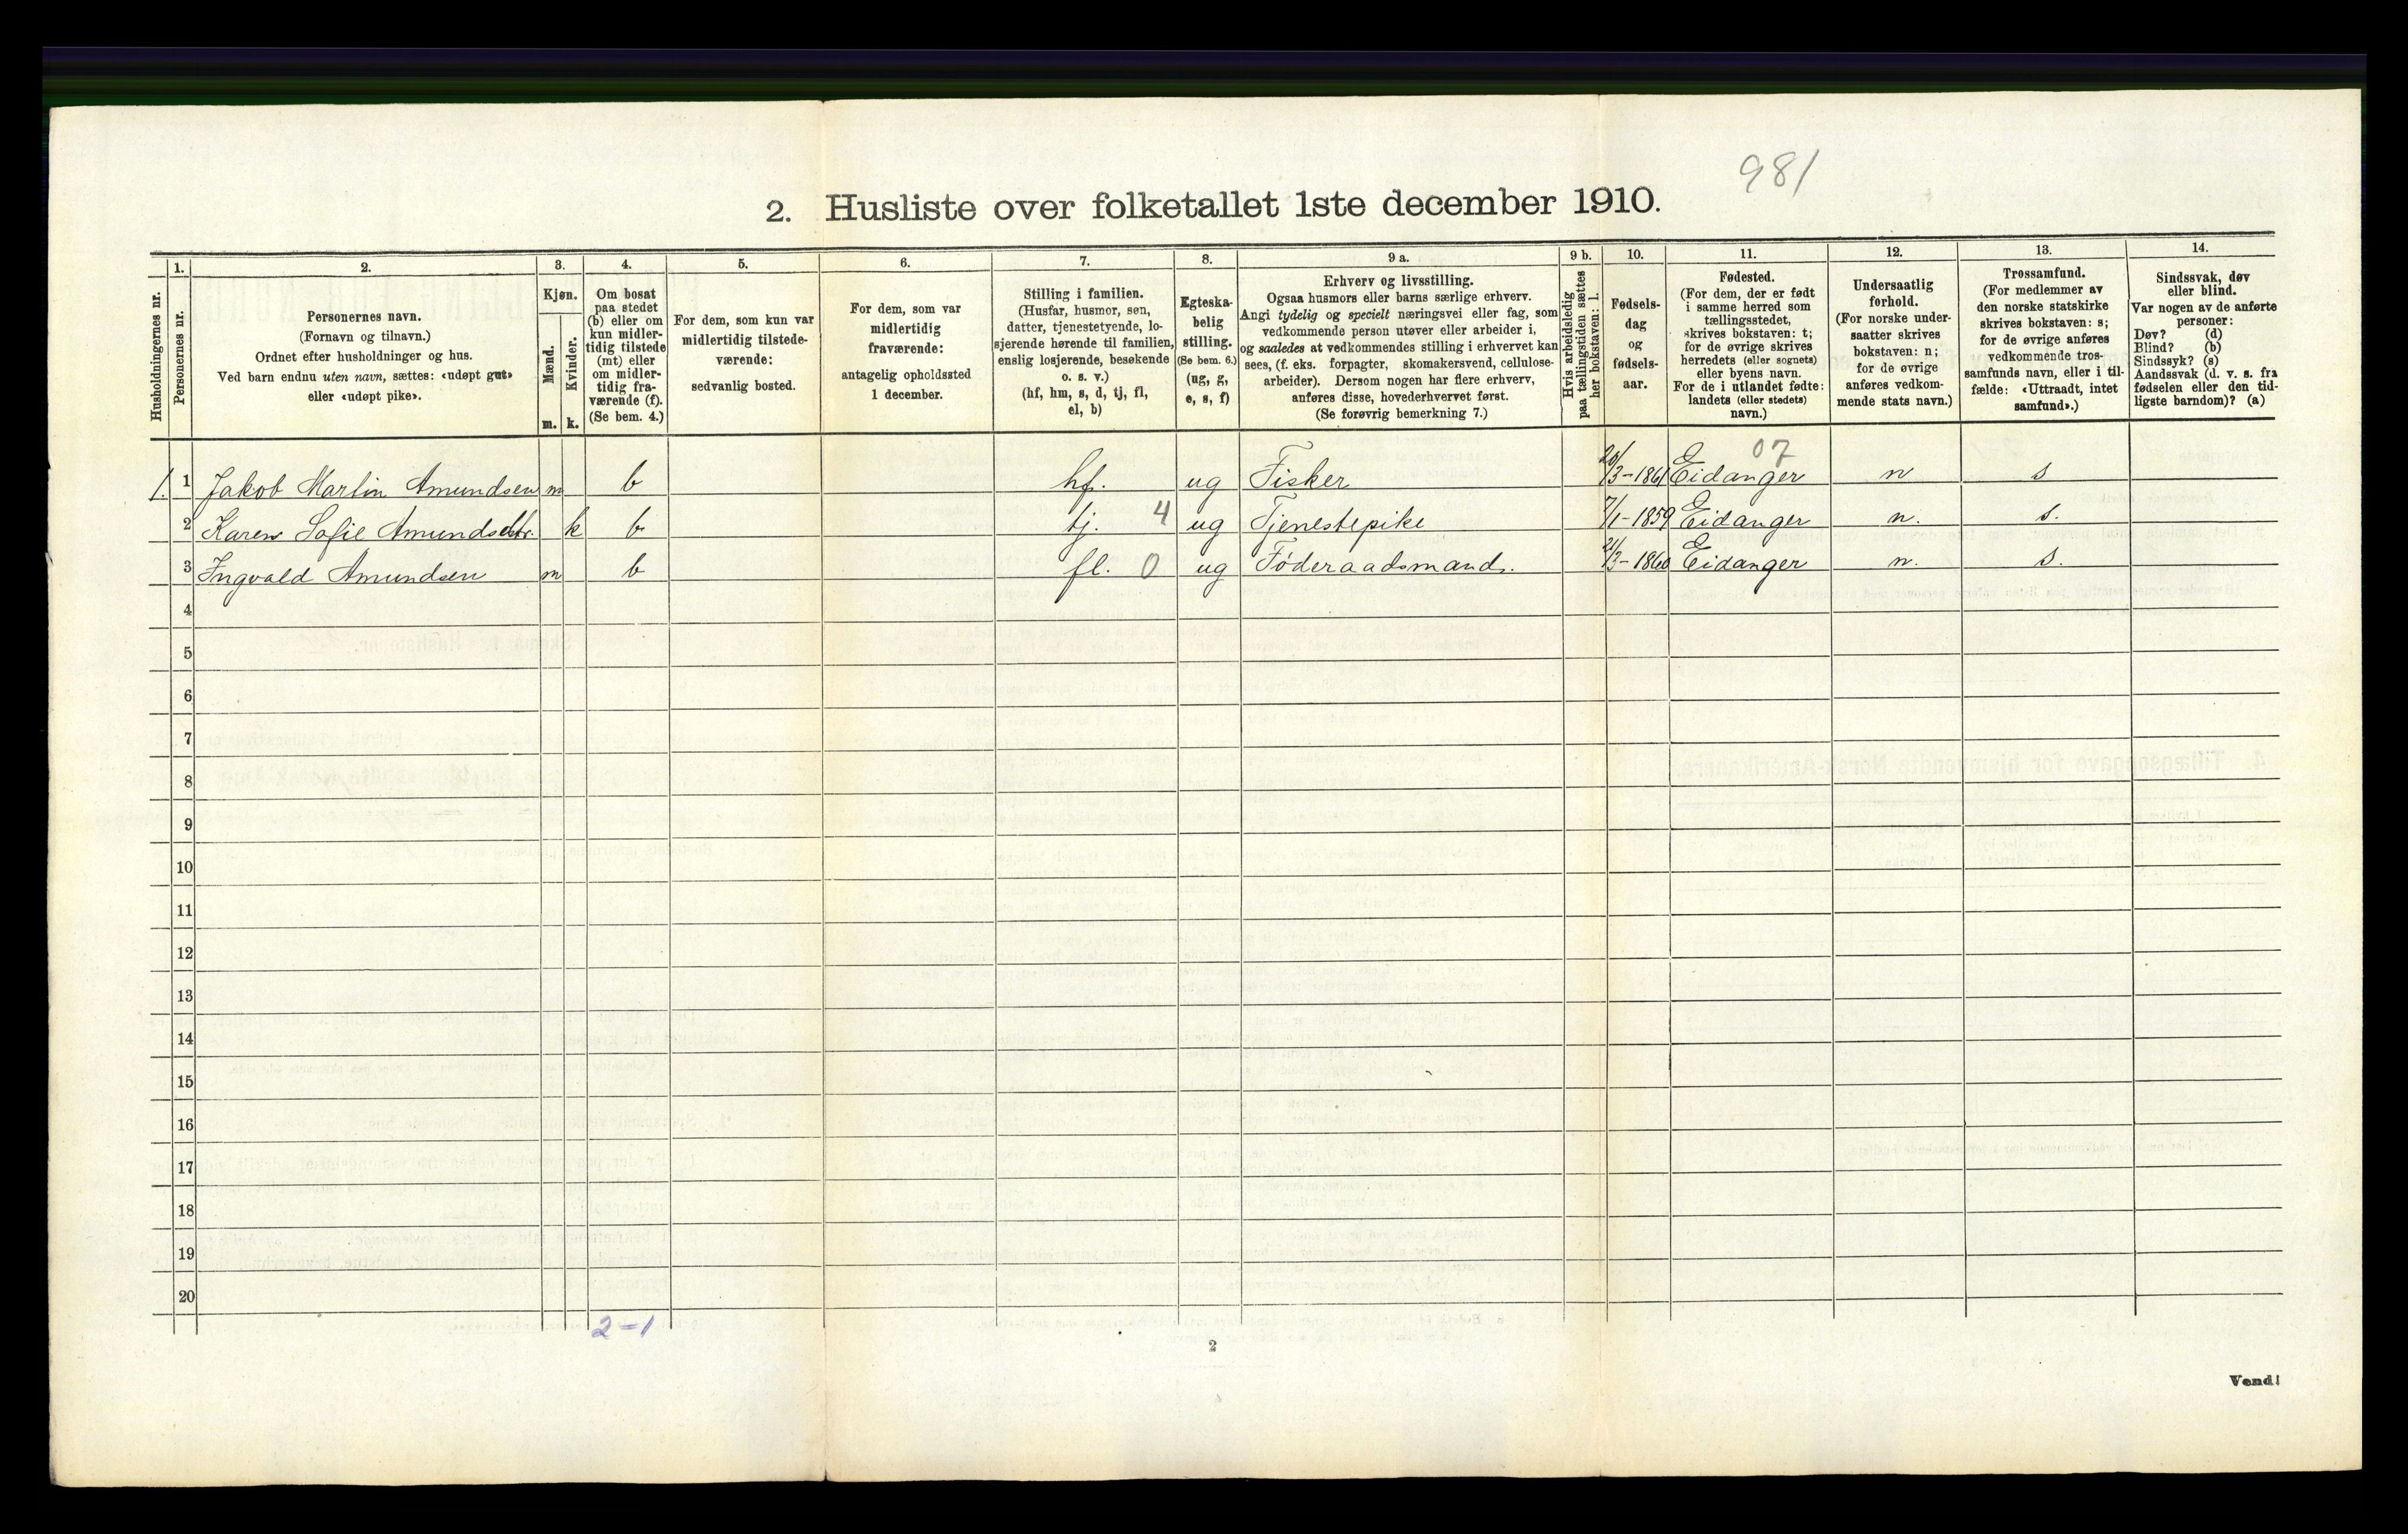 981
2. Husliste over folketallet 1ste december 1910.
Husholdningernes nr.
1.
Personernes nr.
2.
Personernes navn.
(Fornavn og tilnavn.)
Ordnet efter husholdninger og hus.
Ved barn endnu uten navn, sættes: «udøpt gut»
eller «udøpt pike».
3.
Kjøn.
Mænd.
Kvinder.
m. k.
4.
Om bosat
paa stedet
(b) eller om
kun midler-
tidig tilstede
(mt) eller
om midler-
tidig fra-
værende (f).
(Se bem. 4.)
5.
For dem, som kun var
midlertidig tilstede-
værende:
sedvanlig bosted.
6.
For dem, som var
midlertidig
fraværende:
antagelig opholdssted
1 december.
7.
Stilling i familien.
(Husfar, husmor, søn,
datter, tjenestetyende, lo-
sjerende hørende til familien,
enslig losjerende, besøkende
o. s. v.)
(hf, hm, s, d, tj, fl,
el, b)
8.
Egteska-
belig
stilling.
(Se bem. 6.)
(ug, g,
e, s, f)
9 a.
Erhverv og livsstilling.
Ogsaa husmors eller barns særlige erhverv.
Angi tydelig og specielt næringsvei eller fag, som
vedkommende person utøver eller arbeider i,
og saaledes at vedkommendes stilling i erhvervet kan
sees, (f. eks. forpagter, skomakersvend, cellulose-
arbeider). Dersom nogen har flere erhverv,
anføres disse, hovederhvervet først.
(Se forøvrig bemerkning 7.)
9 b.
Hvis arbeidsledig
paa tællingstiden sættes
her bokstaven: l.
10.
Fødsels-
dag
og
fødsels-
aar.
11.
Fødested.
(For dem, der er født
i samme herred som
tællingsstedet,
skrives bokstaven: t;
for de øvrige skrives
herredets (eller sognets)
eller byens navn.
For de i utlandet fødte:
landets (eller stedets)
navn.)
12.
Undersaatlig
forhold.
(For norske under-
saatter skrives
bokstaven: n;
for de øvrige
anføres vedkom-
mende stats navn.)
13.
Trossamfund.
(For medlemmer av
den norske statskirke
skrives bokstaven: s;
for de øvrige anføres
vedkommende tros-
samfunds navn, eller i til-
fælde: «Uttraadt, intet
samfund».)
14.
Sindssvak, døv
eller blind.
Var nogen av de anførte
personer:
Døv? (d)
Blind? (b)
Sindssyk? (s)
Aandssvak (d. v. s. fra
fødselen eller den tid-
ligste barndom)? (a)
07
1. 1 Jakob Martin Amundsen m b hf. ug Fisker 20/3-1861 Eidanger n s
2 Karen Sofie Amundsdtr. k b tj. 4 ug Tjenestepike 7/1-1859 Eidanger n. s.
3 Ingvald Amundsen m b fl. 0 ug Føderaadsmand. 21/3-1860 Eidanger n. s.
4
5
6
7
8
9
10
11
12
13
14
15
16
17
18
19
20
2-1
2
Vend!